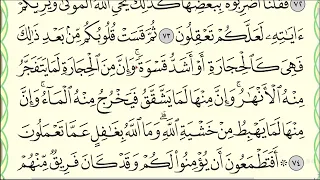 فَقُلْنَا ٱضْرِبُوهُ بِبَعْضِهَا كَذَٰلِكَ يُحْيِ ٱللَّهُ ٱلْمَوْتَىٰ وَيُرِيكُمْ
ءَايَٰتِهِۦ لَعَلَّكُمْ تَعْقِلُونَ ٧٣ ثُمَّ قَسَتْ قُلُوبُكُم مِّنۢ بَعْدِ ذَٰلِكَ
فَهِىَ كَٱلْحِجَارَةِ أَوْ أَشَدُّ قَسْوَةً ۚ وَإِنَّ مِنَ ٱلْحِجَارَةِ لَمَا يَتَفَجَّرُ
مِنْهُ ٱلْأَنْهَٰرُ ۚ وَإِنَّ مِنْهَا لَمَا يَشَّقَّقُ فَيَخْرُجُ مِنْهُ ٱلْمَآءُ ۚ وَإِنَّ
مِنْهَا لَمَا يَهْبِطُ مِنْ خَشْيَةِ ٱللَّهِ ۗ وَمَا ٱللَّهُ بِغَٰفِلٍ عَمَّا تَعْمَلُونَ
٧٤ ۞ أَفَتَطْمَعُونَ أَن يُؤْمِنُوا۟ لَكُمْ وَقَدْ كَانَ فَرِيقٌ مِّنْهُمْ